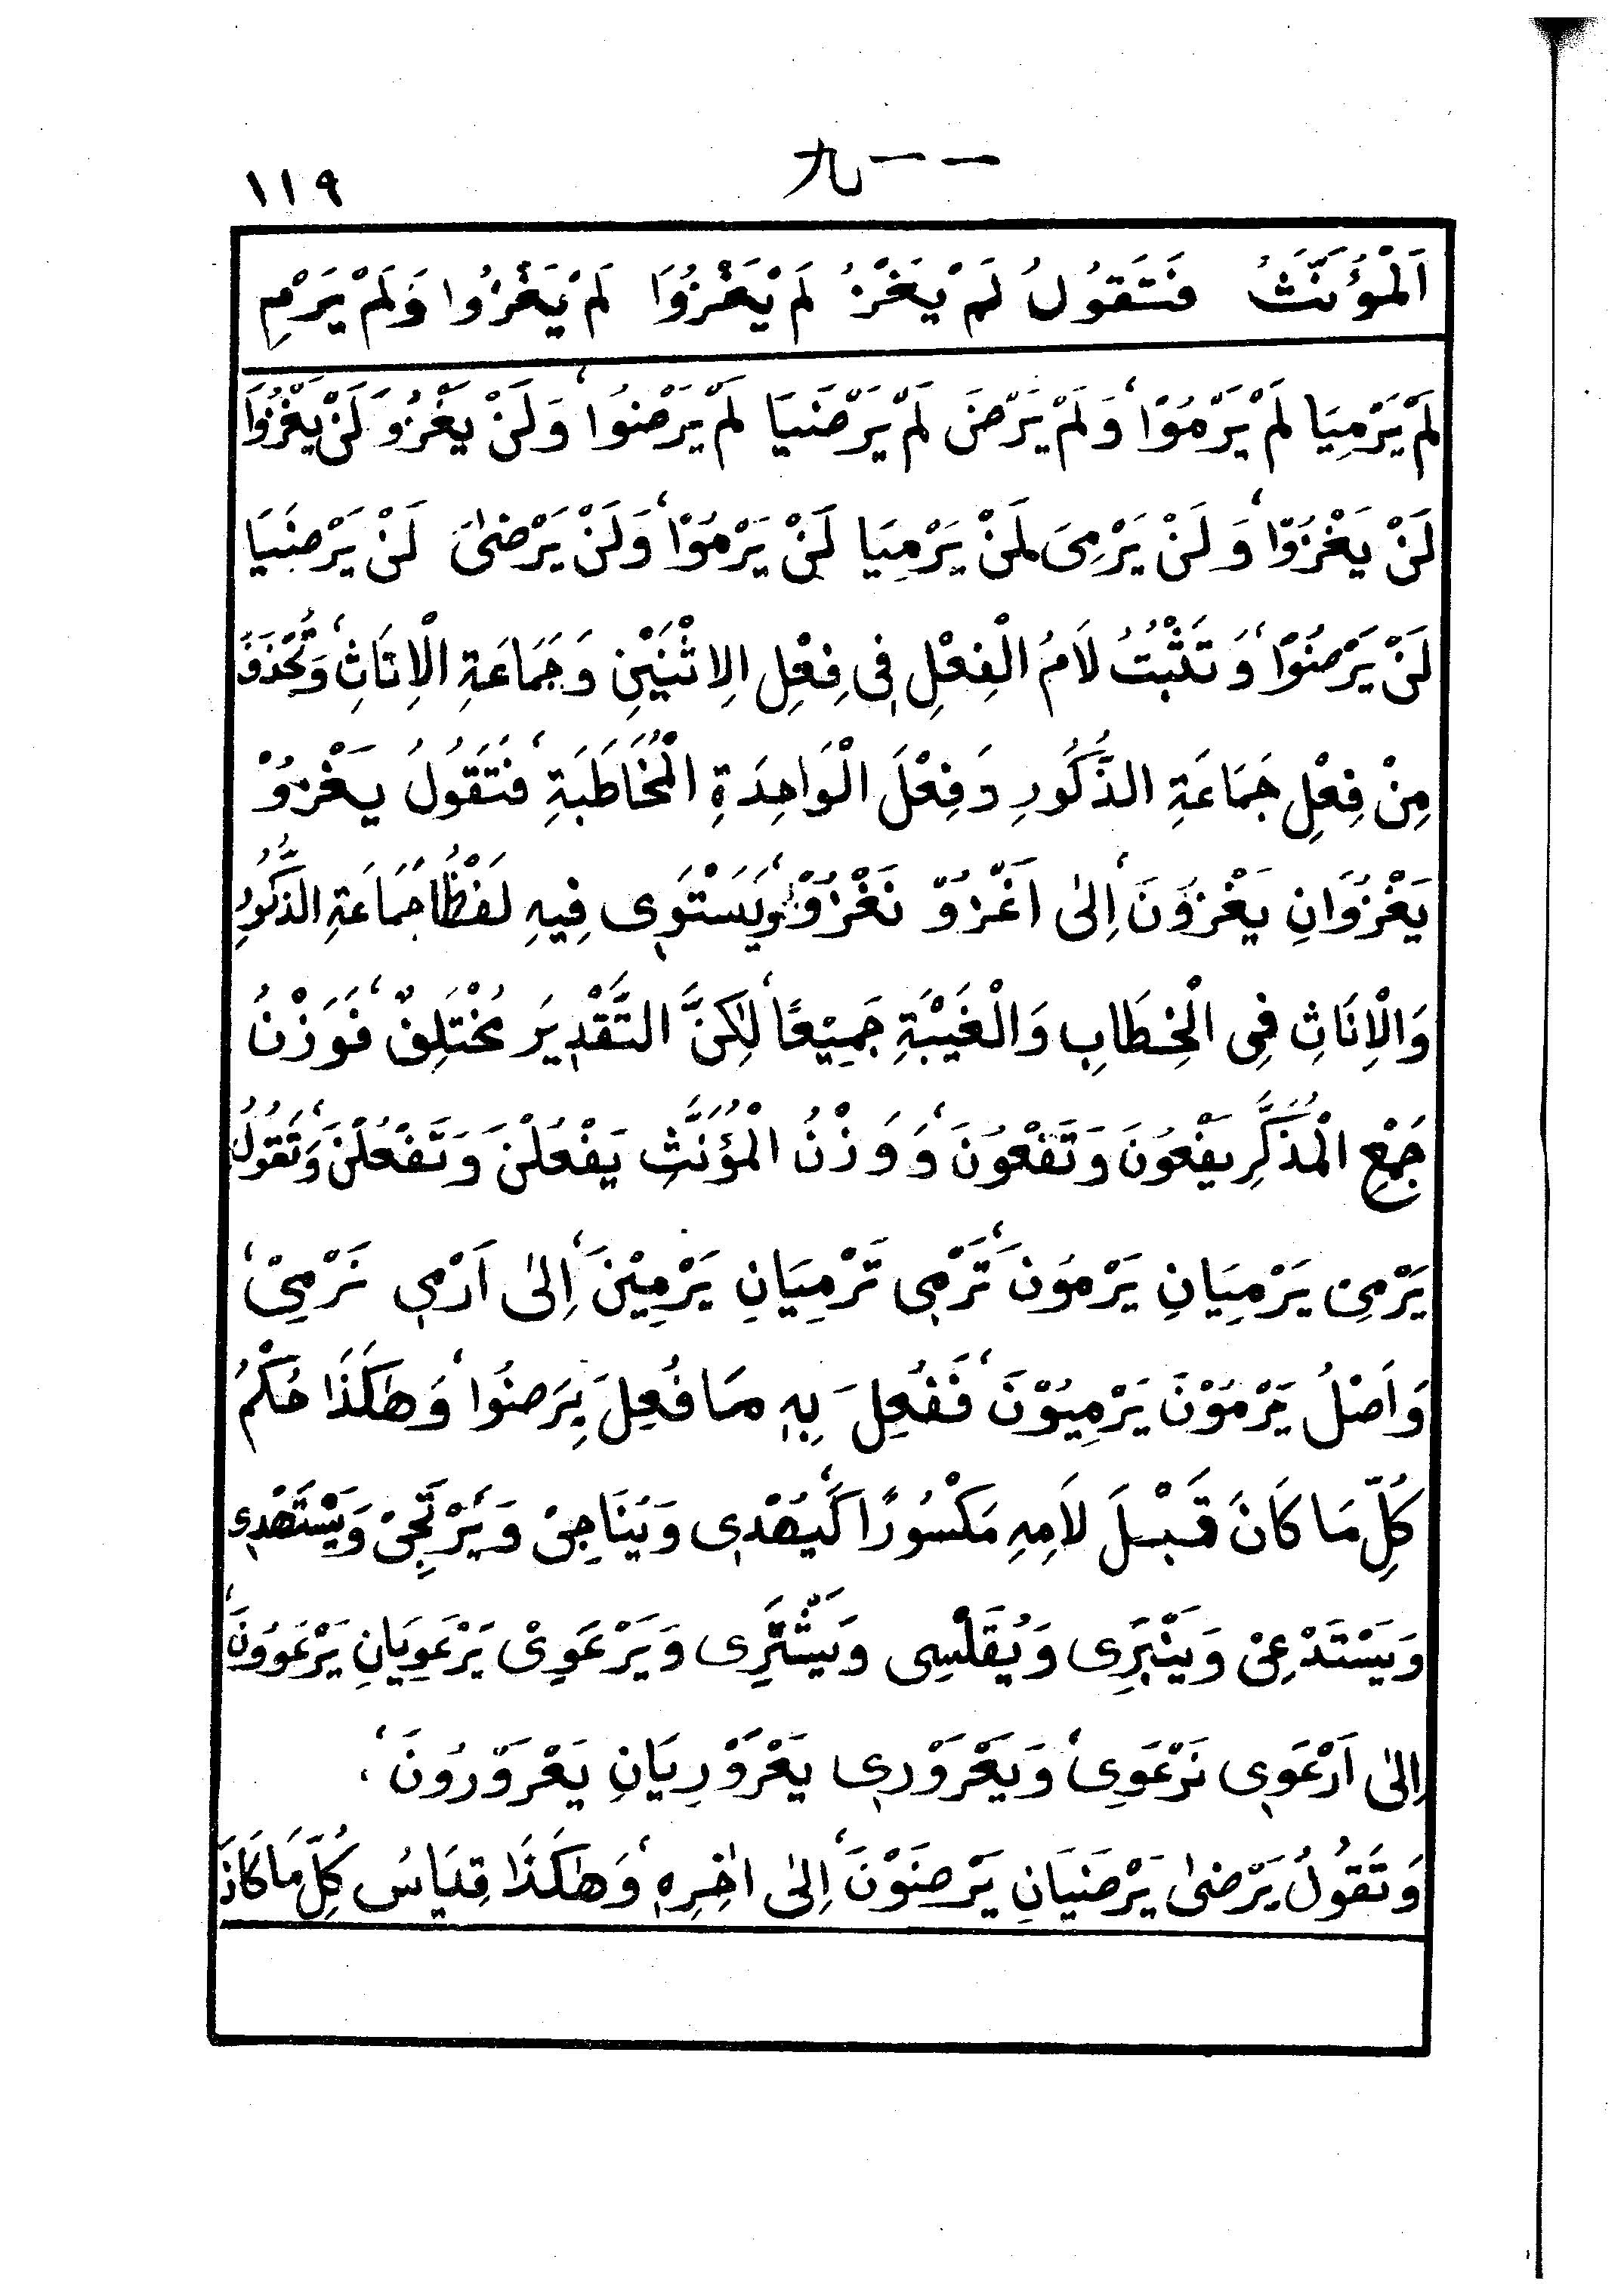 一一九
١١٩
اَلْمُؤَنَّثُ فَتَقُولُ لَمْ يَغْزُ لَمْ يَغْزُوَا لَمْ يَغْزُوا وَلَمْ يَرْمِ
لَمْ يَرْمِيَا لَمْ يَرْمُوْا وَلَمْ يَرْضَ لَمْ يَرْضَيَا لَمْ يَرْضَوْا وَلَنْ يَغْزُوَ لَنْ يَغْزُوَا
لَنْ يَغْزُوْا وَلَنْ يَرْمِىَ لَنْ يَرْمِيَا لَنْ يَرْمُوْا وَلَنْ يَرْضىٰ لَنْ يَرْضَيَا
لَنْ يَرْضَوْا وَتَثْبُتُ لَامُ الْفِعْلِ فِى فِعْلِ الِاثْنَيْنِ وَجَمَاعَةِ الْاِنَاثِ وَتُحْذَفُ
مِنْ فِعْلِ جَمَاعَةِ الذُّكُورِ وَفِعْلَ الْوَاحِدَةِ الْمُخَاطَبَةِ فَتَقُولُ يَغْزُوْ
يَغْزُوَانِ يَغْزُوْنَ اِلٰى اَغْزُوْ نَغْزُوْ وَيَسْتَوِى فِيهِ لَفْظُ جَمَاعَةِ الذُّكُورِ
وَالْاِنَاثِ فِى الْخِطَابِ وَالْغَيْبَةِ جَمِيْعًا لٰكِنَّ التَّقْدِيرَ مُخْتَلِفٌ فَوَزْنُ
جَمْعِ الْمُذَكَّرِ يَفْعُونَ وَتَفْعُونَ وَوَزْنُ الْمُؤَنَّثِ يَفْعُلْنَ وَتَفْعُلْنَ وَتَقُولُ
يَرْمِىْ يَرْمِيَانِ يَرْمُوْنَ تَرْمِى تَرْمِيَانِ يَرْمِيْنَ اِلٰى اَرْمِى نَرْمِىْ
وَاَصْلُ يَرْمُوْنَ يَرْمِيُوْنَ فَفُعِلَ بِهِ مَا فُعِلَ بِرَضُوا وَهٰكَذَا حُكْمُ
كُلِّ مَا كَانَ قَبْلَ لَامِهِ مَكْسُورًا كَيُهْدِى وَيُنَاجِىْ وَيَرْتَجِىْ وَيَسْتَهْدِى
وَيَسْتَدْعِىْ وَيَنْبَرِى وَيُقَلْسِى وَيَشْتَرِى وَيَرْعَوِىْ يَرْعَوِيَانِ يَرْعَوُوْنَ
اِلٰى اَرْعَوِى نَرْعَوِى وَيَعْرَوْرِى يَعْرَوْرِيَانِ يَعْرَوْرُونَ
وَتَقُولُ يَرْضىٰ يَرْضَيَانِ يَرْضَوْنَ اِلٰى اٰخِرِهِ وَهٰكَذَا قِيَاسُ كُلِّ مَا كَانَ